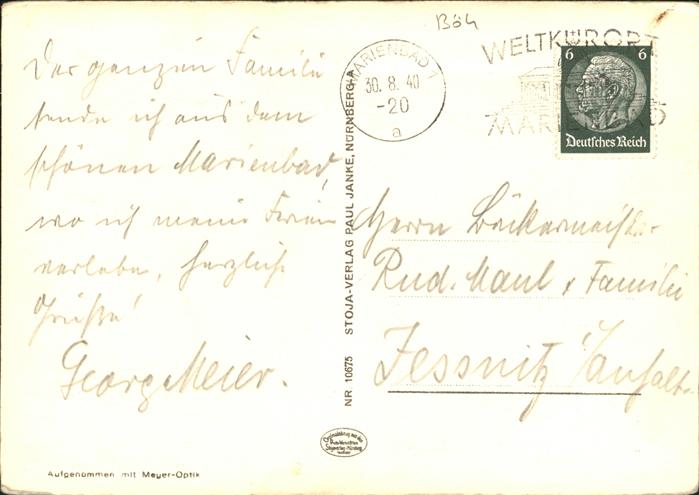 Böh
Der ganzen Familie
sende ich aus dem
schönen Marienbad,
wo ich meine Ferien
verlebe, herzliche
Grüsse!
Georg Meier.
Aufgenommen mit Meyer-Optik
NR 10675 STOJA-VERLAG PAUL JANKE, NÜRNBERG-A
MARIENBAD 1
30. 8. 40
-20
a
WELTKURORT
MARIENBAD
6 6
Deutsches Reich
Herrn Bäckermeister
Rud. Maul & Familie
Jessnitz /Anhalt.